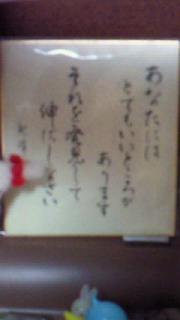 あなたには
とてもいいところが
あります
それを発見して
伸ばしなさい